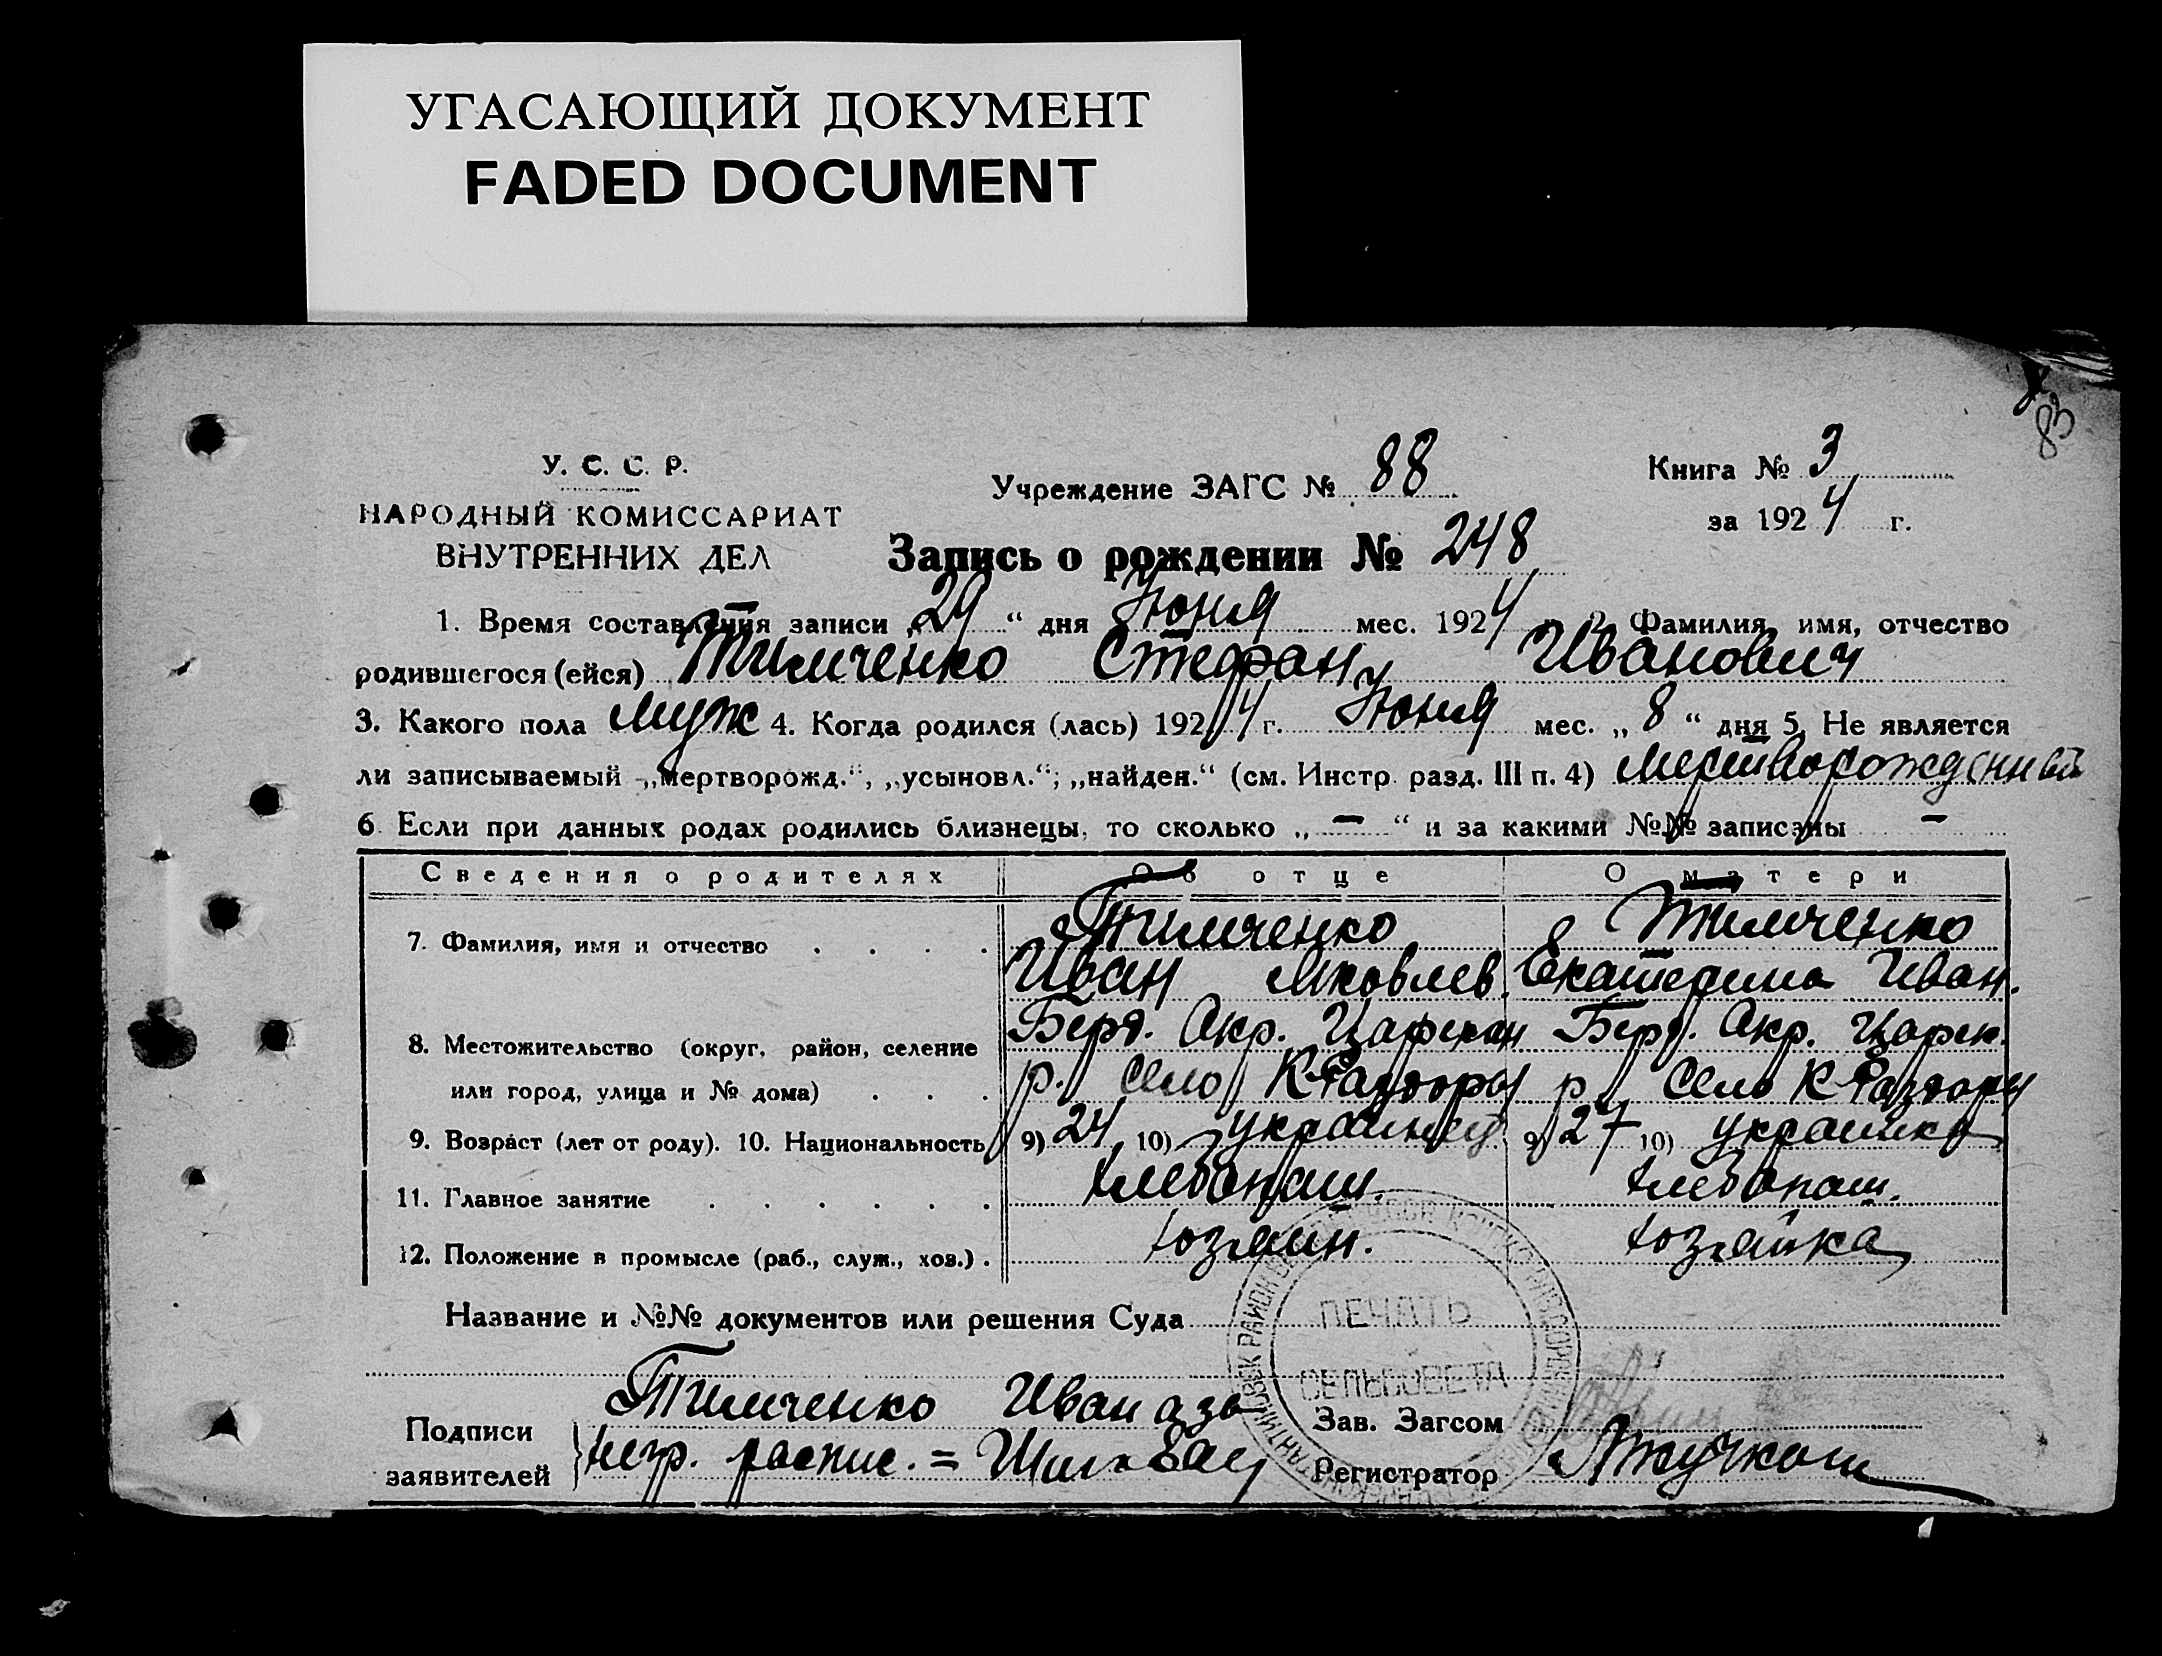 УГАСАЮЩИЙ ДОКУМЕНТ
FADED DOCUMENT
83
У. С. С. Р.
НАРОДНЫЙ КОМИССАРИАТ
ВНУТРЕННИХ ДЕЛ
Учреждение ЗАГС № 88
Книга № 3
за 1924 г.
Запись о рождении № 248
1. Время составления записи „29“ дня Июня мес. 1924 г. 2. Фамилия, имя, отчество
родившегося (ейся) Тимченко Стефан Иванович
3. Какого пола муж 4. Когда родился (лась) 1924 г. Июня мес. „8“ дня 5. Не является
ли записываемый „мертворожд.“, „усыновл.“; „найден.“ (см. Инстр. разд. III п. 4) мертворожденный
6. Если при данных родах родились близнецы, то сколько „—“ и за какими №№ записаны —
Сведения о родителях Об отце О матери
7. Фамилия, имя и отчество . . . . Тимченко Тимченко
Иван Яковлев. Екатерина Иван.
8. Местожительство (округ, район, селение Берд. Окр. Царекон Берд. Окр. Царек.
или город, улица и № дома) . . . р. село К Раздоры р село К Раздоры
9. Возраст (лет от роду). 10. Национальность 9) 24 10) украинец 9) 27 10) украинка
11. Главное занятие . . . . . . хлебопаш. хлебопаш.
12. Положение в промысле (раб., служ., хоз.) . хозяин. хозяйка
Название и №№ документов или решения Суда
ПЕЧАТЬ
СЕЛЬСОВЕТА
Подписи
заявителей
Тимченко Иван а за
негр. распис. =
Зав. Загсом
Регистратор